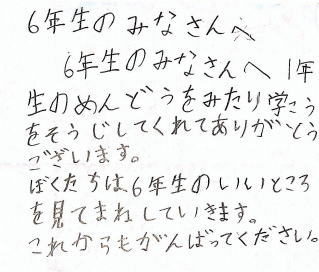 6年生のみなさんへ
6年生のみなさんへ 1年
生のめんどうをみたり学こう
をそうじしてくれてありがとう
ございます。
ぼくたちは、6年生のいいところ
を見てまねしていきます。
これからもがんばってください。